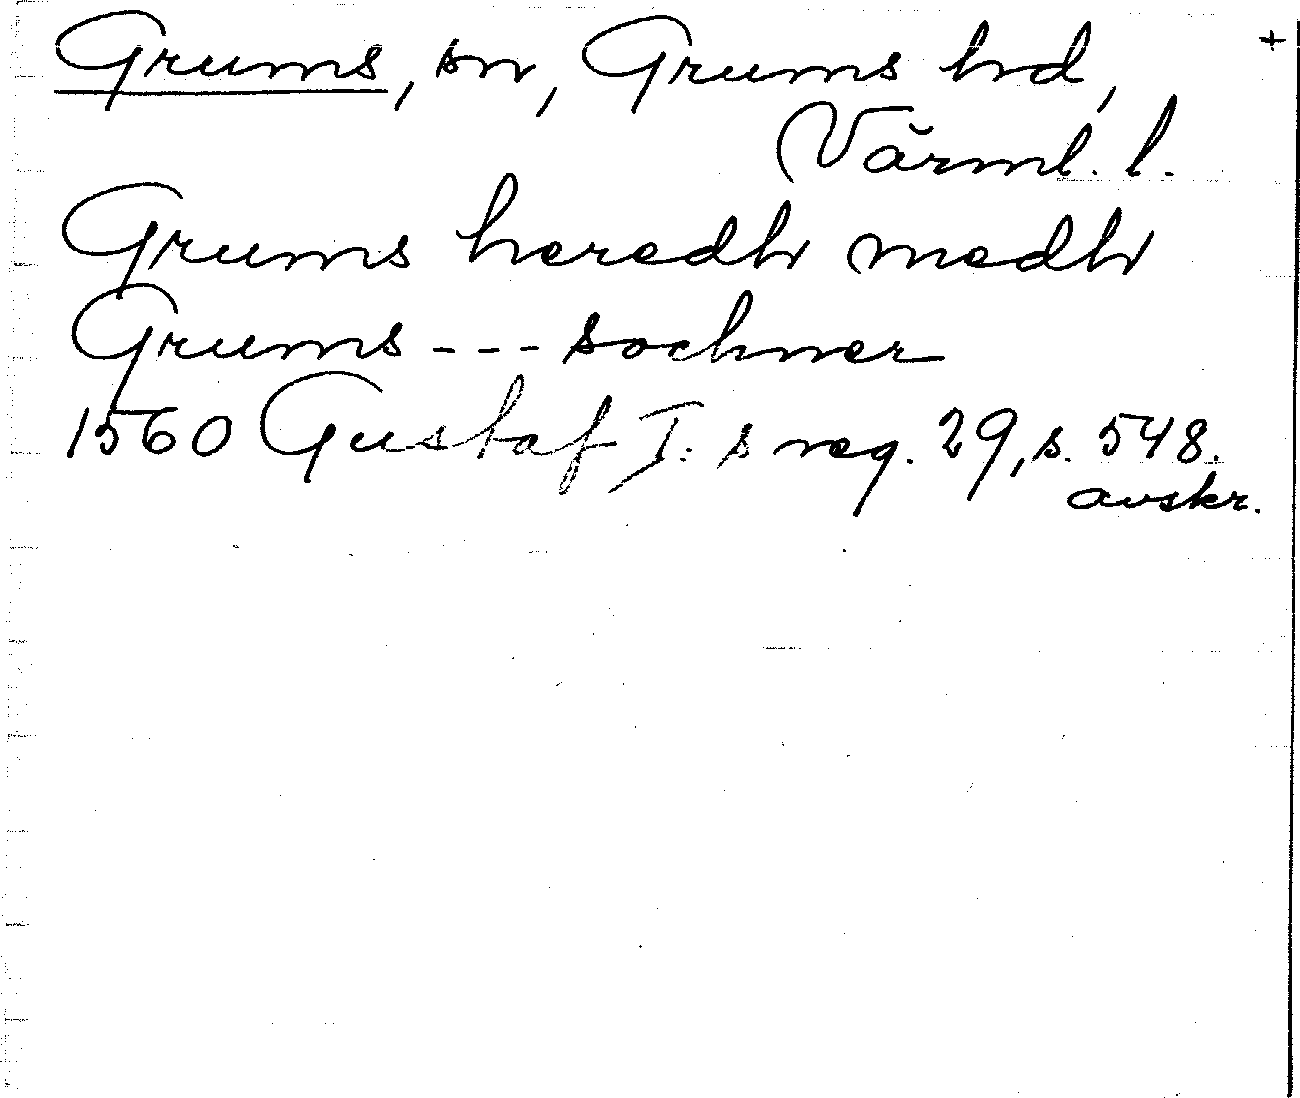 Grums, sn, Grums hd, +
Värml. l.
Grums heredh medh
Grums --- sochner
1560 Gustaf I:s reg. 29, s. 548.
avskr.